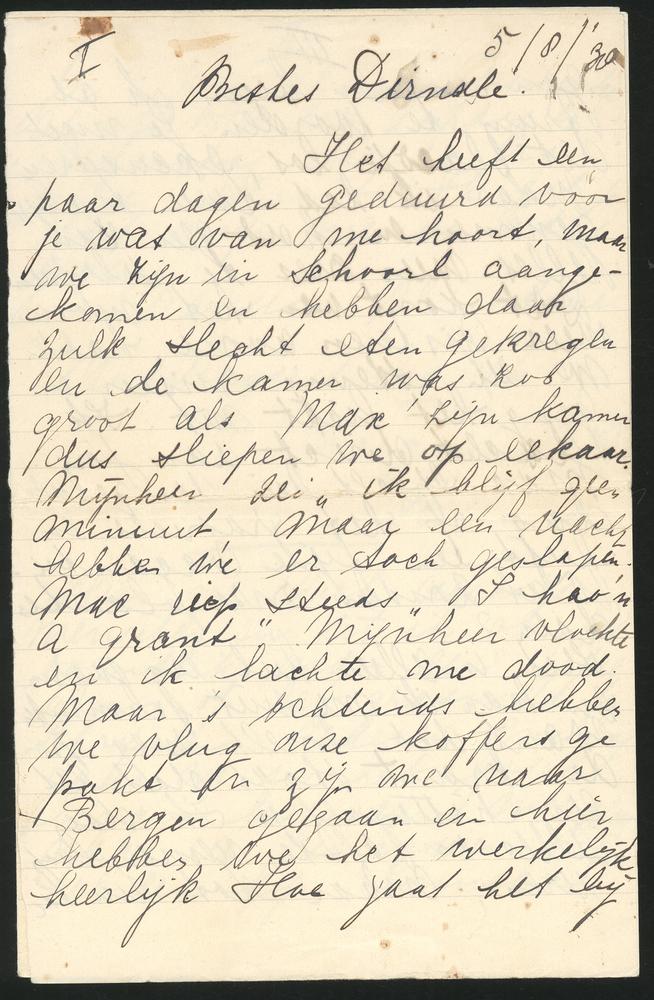 I
5/8/'30
Bestes Dirndle.
Het heeft een
paar dagen geduurd voor
je wat van me hoort, maar
we zijn in Schoorl aange-
komen en hebben daar
zulk slecht eten gekregen
en de kamer was zoo
groot als Max' zijn kamer
dus sliepen we op elkaar.
Mijnheer zei „ ik blijf geen
minuut, maar een nacht
hebben we er toch geslapen.
Max riep steeds „I hao'n
a grant" Mijnheer vloekte
en ik lachte me dood.
Maar 's ochtends hebben
we vlug onze koffers ge
pakt en zijn we naar
Bergen gegaan en hier
hebben we het werkelijk
heerlijk Hoe gaat het bij